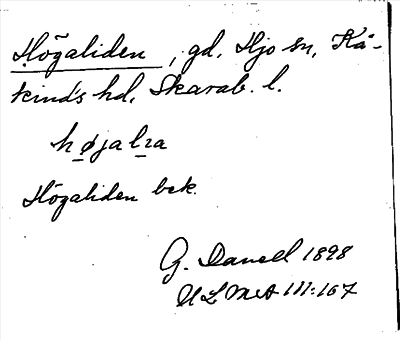 Högaliden, gd, Hjo sn, Kå-
kinds hd, Skarab. l.
højalɩa
Högaliden bek.
G. Danell 1898
ULMA 111:167